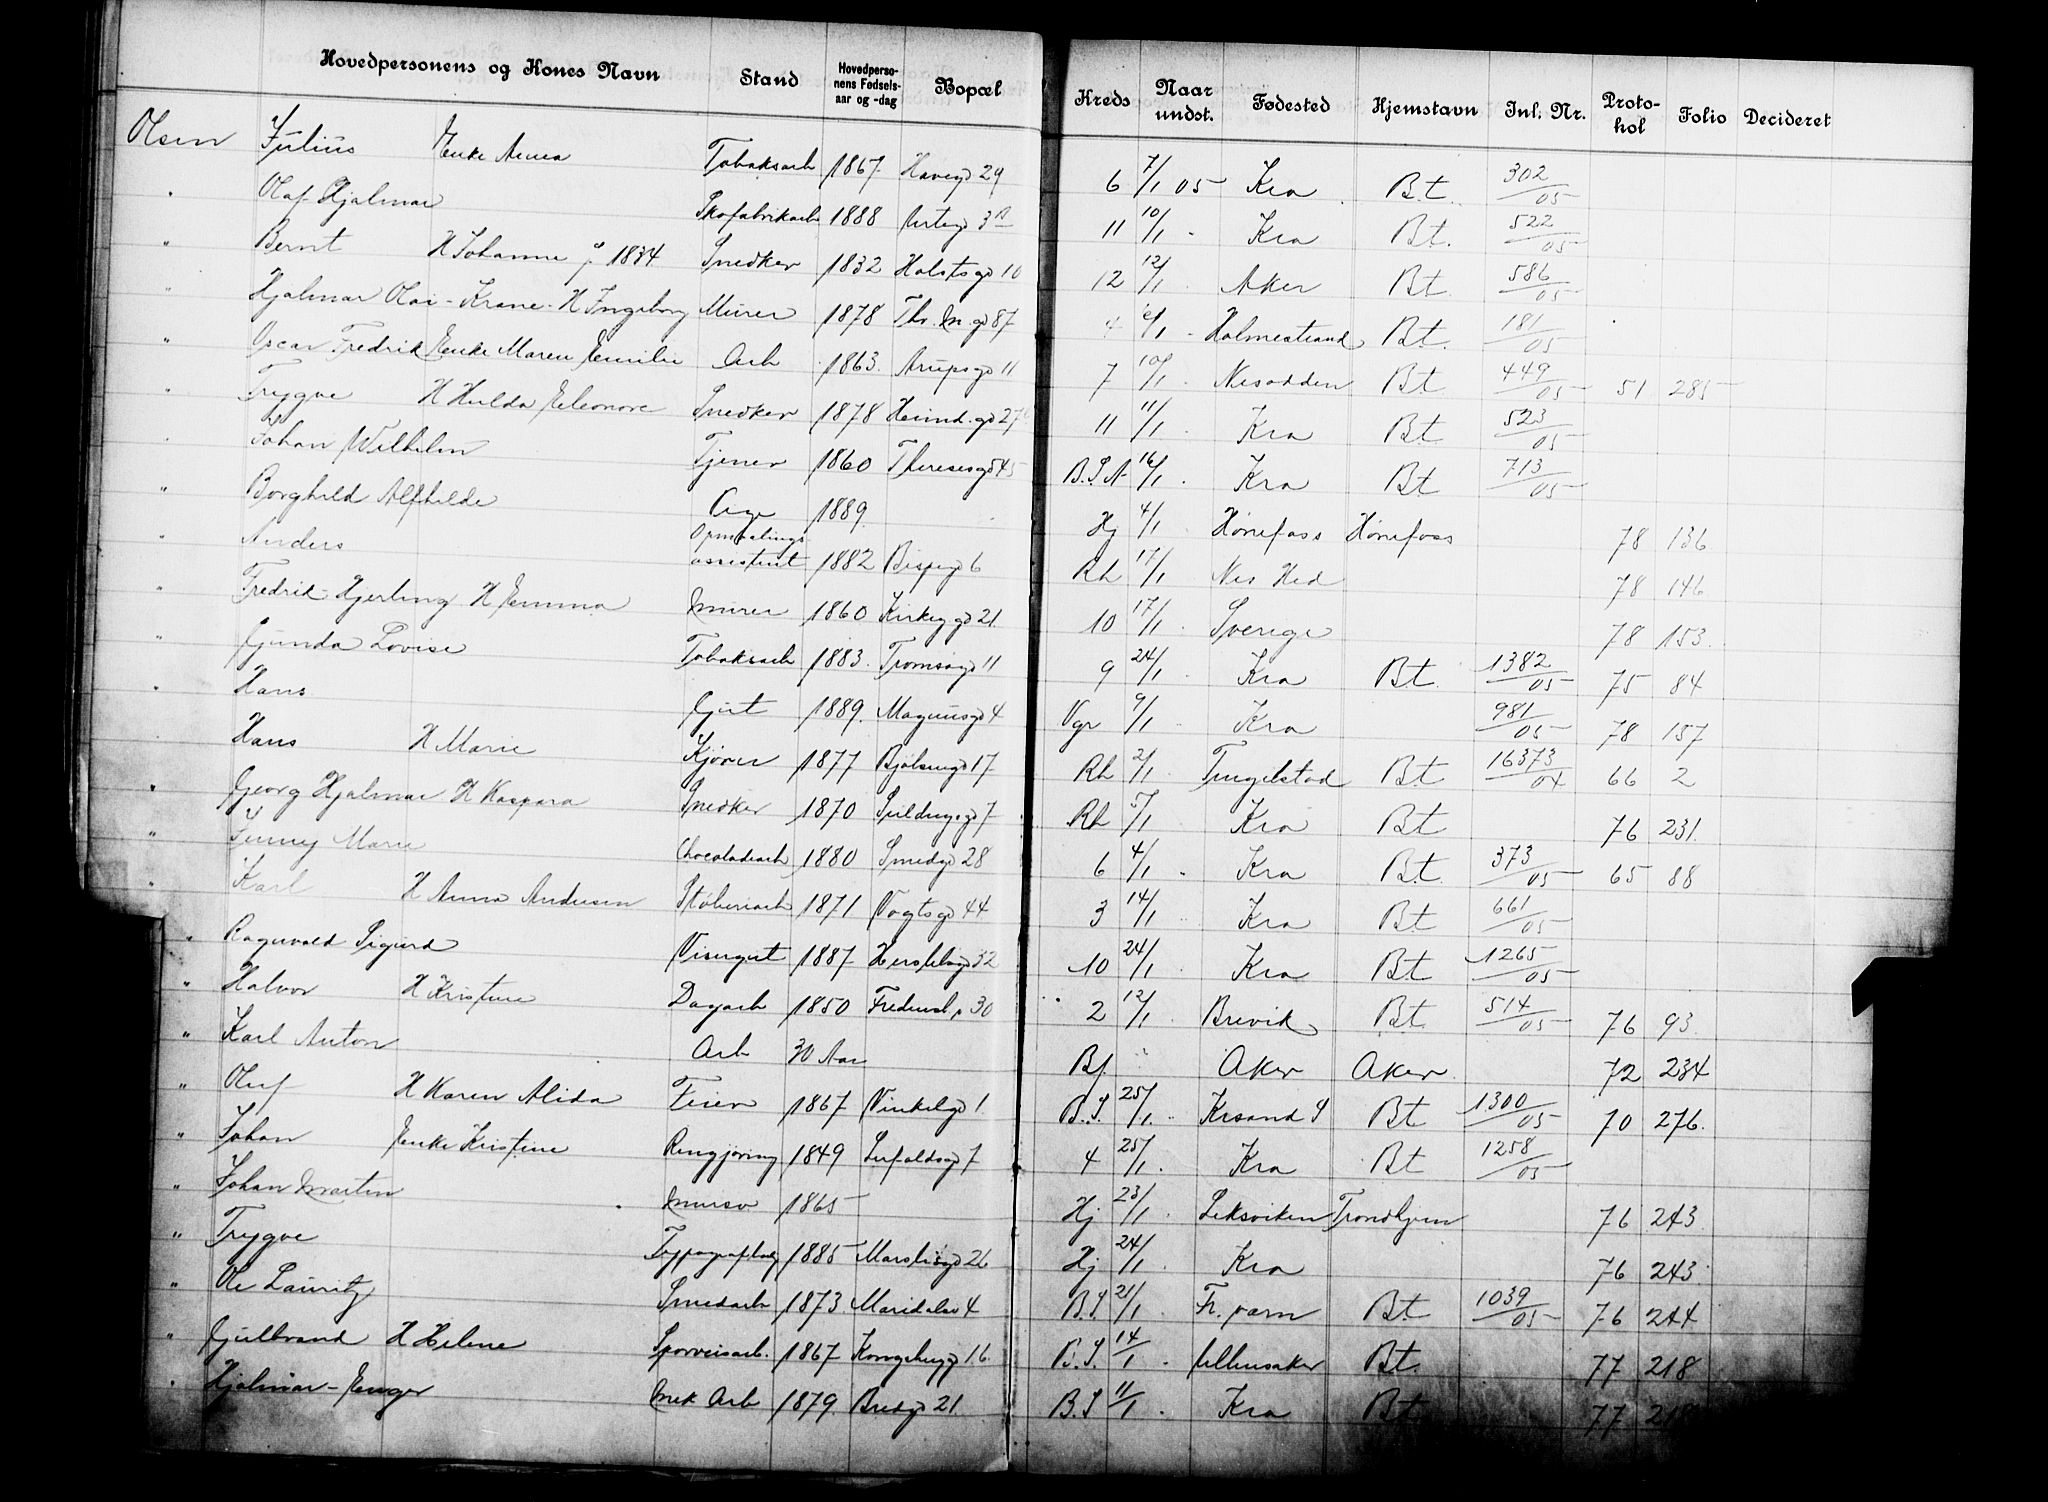 Hovedpersonens og Kones Navn Stand Hovedpersonens Fødselsaar og -dag Bopæl Kreds Naar undst. Fødested Hjemstavn Inl. Nr. Protokol Folio Decideret
Olsen Julius Enke Anna Tobaksarb 1867 Haveg 29 6 7/1 05 Kra Bt. 302/05
" Olaf Hjalmar Skofabrikarb 1888 Urteg 3 11 10/1 " Kra Bt. 522/05
" Bernt H Johanne f 1834 Snedker 1832 Holstsgd 10 12 12/1 Aker Bt 586/05
" Hjalmar Olai - Krane - H Ingeborg Murer 1878 Th. M. gd 87 4 6/1 Holmestrand Bt. 181/05
" Oscar Fredrik Enke Maren Emilie Arb 1863. Arupsgd 11 7 10/1 Nesodden Bt 449/05 51 285
" Trygve H Hulda Eleonore Snedker 1878 Heimd. gd 27 11 11/1 Kra Bt 523/05
" Johan Wilhelm Tjener 1860 Theresesgd 45 B.S.A. 16/1 Kra Bt 713/05
" Borghild Alfhilde Pige 1889 Hj 4/1 Hønefoss Hønefoss 78 136
" Anders Opmaalings assistent 1882 Bispegd 6 Rh 17/1 Nes Hed 78 146
" Fredrik Hjerling H Emma Murer 1860 Kirkeg gd 21. 10 17/1 Sverige 78 153.
" Gunda Lovise Tobaksarb 1883. Tromsøgd 11 9 24/1 Kra Bt. 1382/05 75 84
" Hans Gjut 1889. Magnusgd 4 Vgr 9/1 Kra 981/05 78 157
Hans H Marie Kjører 1877 Bjølsengd 17 Rh 2/1 Tingelstad Bt 16373/04 66 2
" Georg Hjalmar H Kaspara Snedker 1870 7 Rh 5/1 Kra Bt 76 231.
" Jenny Marie Chocoladearb 1880 Smedgd 28 6 4/1 " Kra Bt. 373/05 65 88
" Karl H Anna Andersen Støberiarb 1871 Vogtsgd 44 3 14/1 Kra Bt 661/05
" Ragnvald Sigurd Visergut 1887 Herslebsgd 32 10 24/1 Kra Bt 1265/05
" Halvor H Kristine Dagarb 1850 30 2 12/1 Brevik Bt. 514/05 76 93.
" Karl Anton Arb 30 Aar Bf " Aker Aker 72 234
" Oluf H Karen Alida Feier 1867 Vinkelgd 1. B.S. 25/1 Krsand S Bt 1300/05 70 276.
" Johan Enke Kristine Rengjøring 1849 Leirfaldsgd 7 4 25/1 Kra Bt 1258/05
" Johan Martin Mursv 1865 Hj 23/1 Leksviken Trondhjem 76 243.
" Trygve 1885 26 Hj 24/1 Kra 76 243.
" Ole Lauritz Smedarb 1873. Maridalsv 4 B.S. 21/1 Fr. varn Bt. 1039/05 76 244
" Gulbrand H Helene Sporveisarb. 1867 16. B.S. 14/1 Ullensaker Bt. 77 218
" Hjalmar - Enger Mek Arb 1879. Bredgd 21. B.S 11/1 Kra Bt. 77